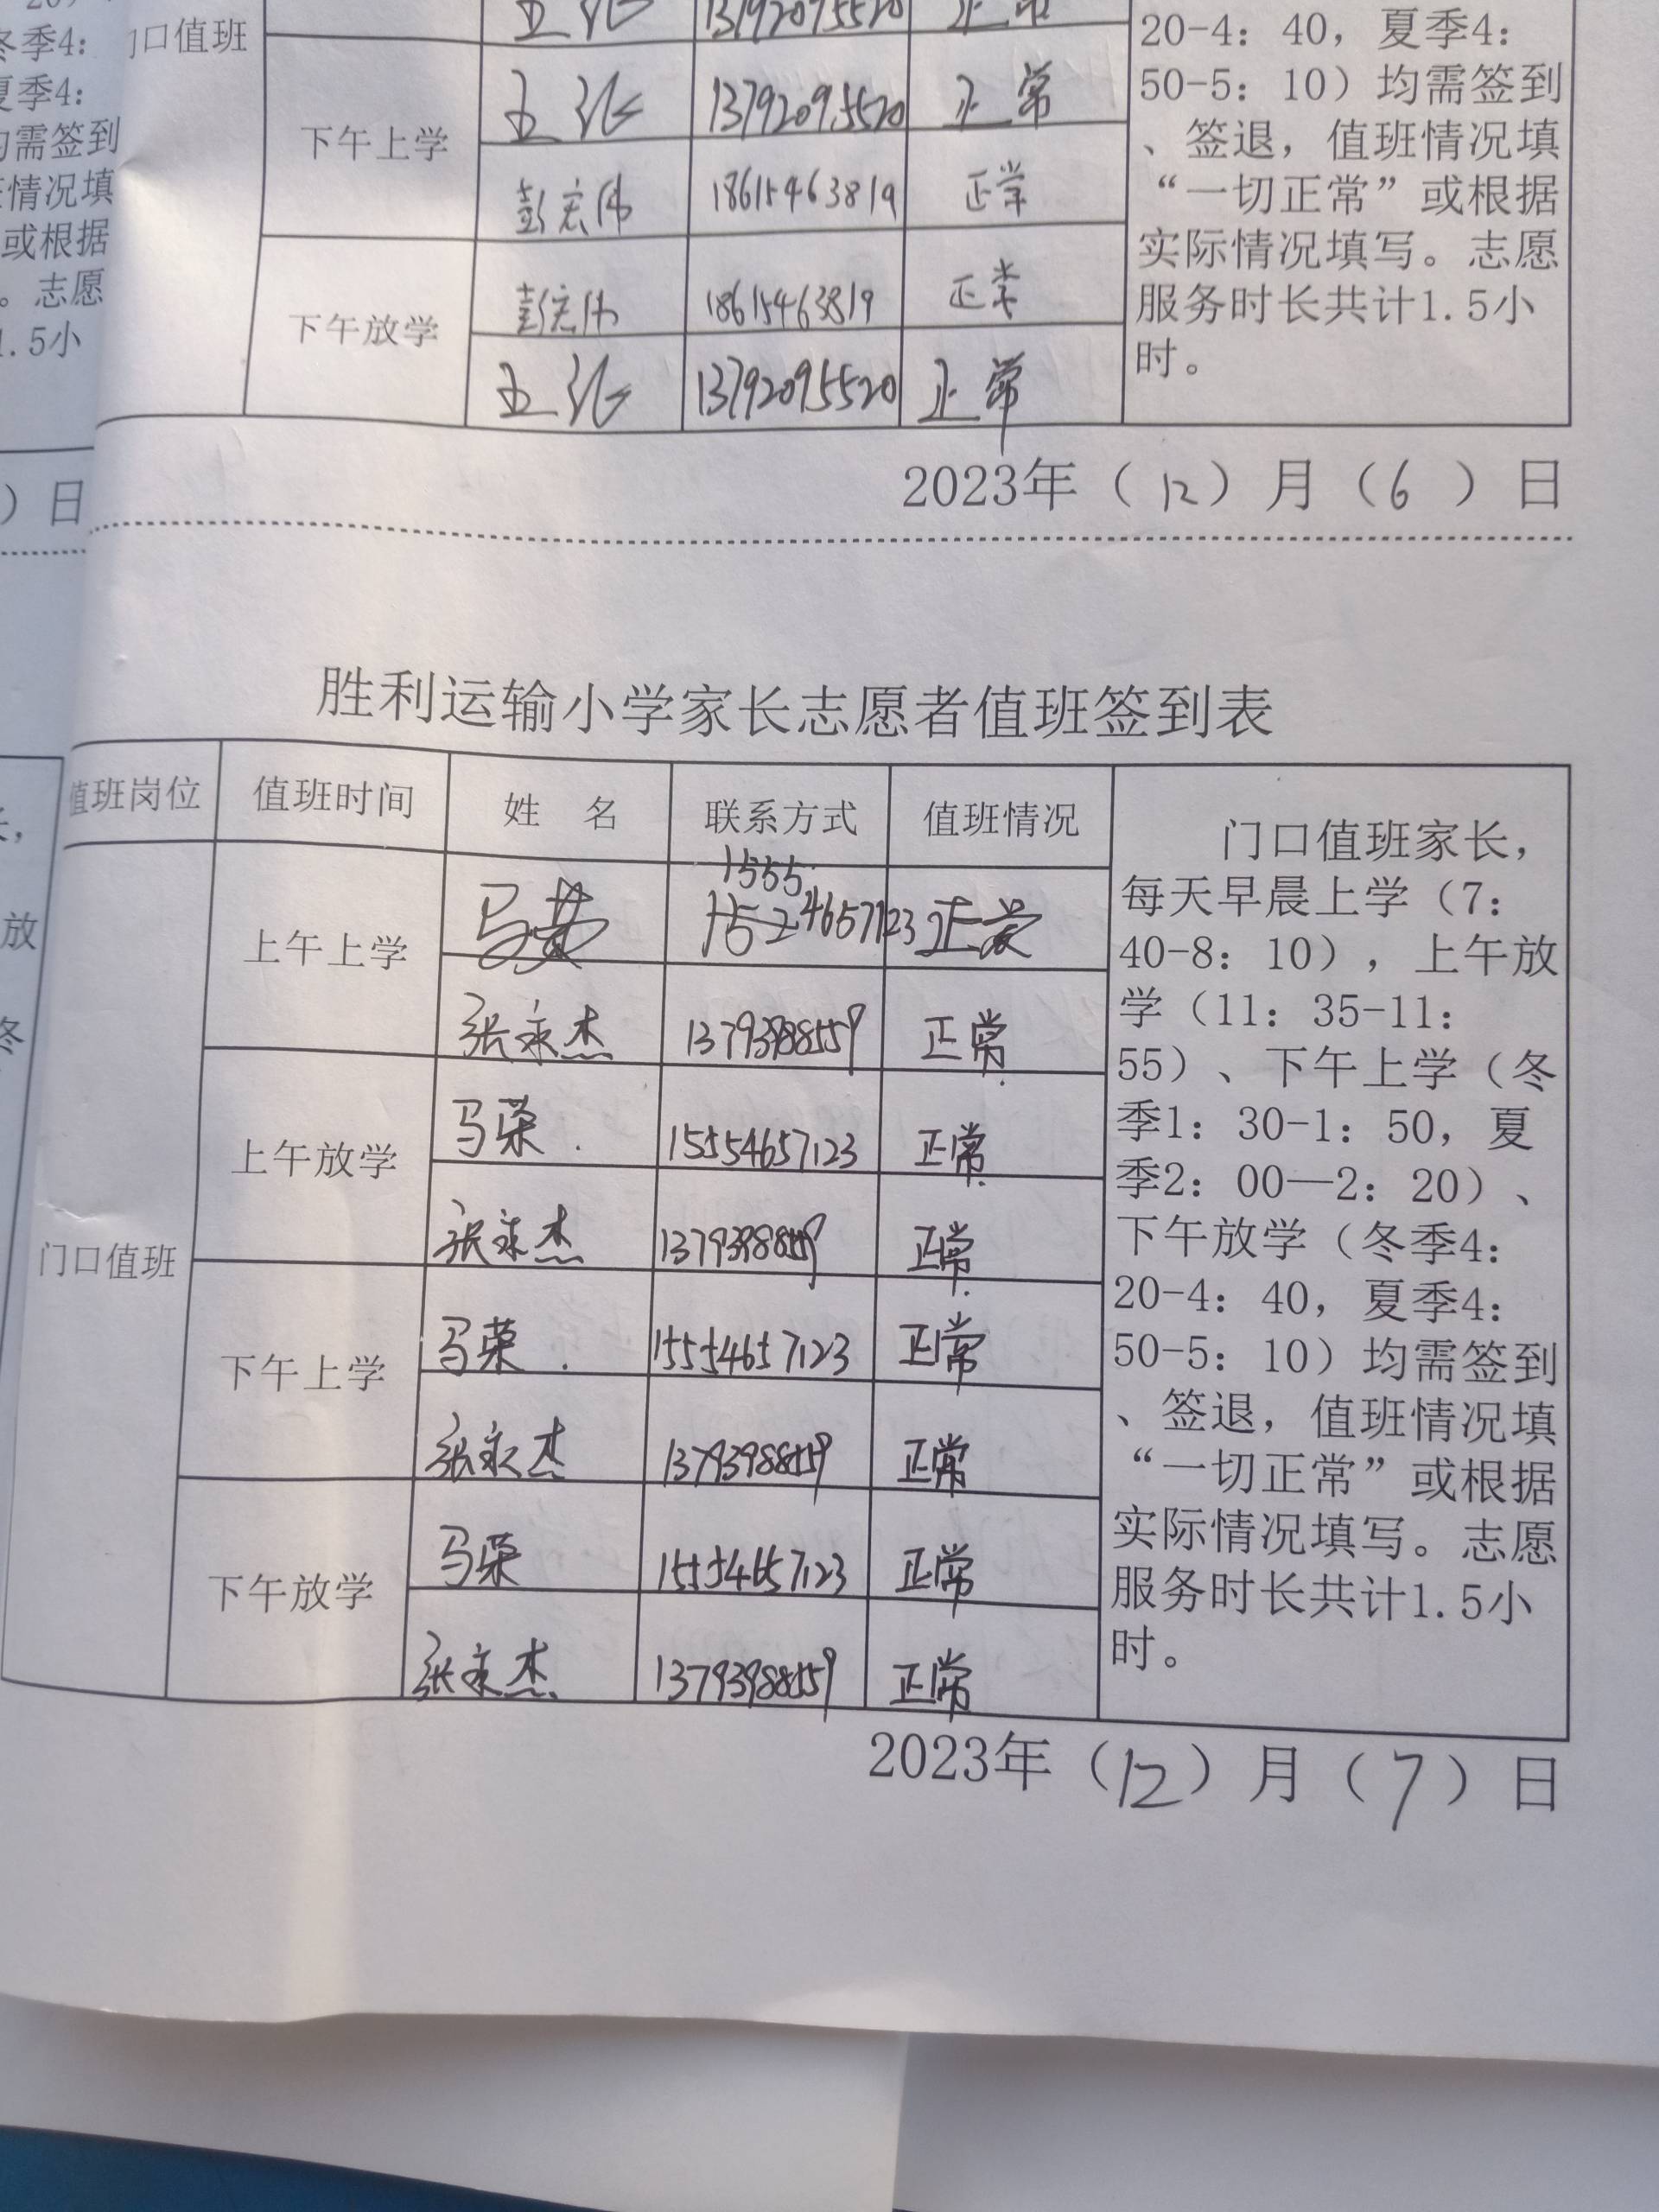 冬季4:
夏季4:
均需签到
情况填
或根据
。志愿
1.5小
）日
放
冬
门口值班
13792095520 正常
下午上学 13792095520 正常
彭宏伟 18615463819 正常
下午放学 彭宏伟 18615463819 正常
13792095520 正常
20-4：40，夏季4：
50-5：10）均需签到
、签退，值班情况填
“一切正常”或根据
实际情况填写。志愿
服务时长共计1.5小
时。
2023年（12）月（6）日
胜利运输小学家长志愿者值班签到表
值班岗位 值班时间 姓 名 联系方式 值班情况
门口值班
上午上学 马荣 1555 4657123 正常
张永杰 13793988559 正常
上午放学 马荣 15554657123 正常
张永杰 13793988559 正常
下午上学 马荣 15554657123 正常
张永杰 13793988559 正常
下午放学 马荣 15554657123 正常
张永杰 13793988559 正常
门口值班家长，
每天早晨上学（7：
40-8：10），上午放
学（11：35-11：
55）、下午上学（冬
季1：30-1：50，夏
季2：00—2：20）、
下午放学（冬季4：
20-4：40，夏季4：
50-5：10）均需签到
、签退，值班情况填
“一切正常”或根据
实际情况填写。志愿
服务时长共计1.5小
时。
2023年（12）月（7）日